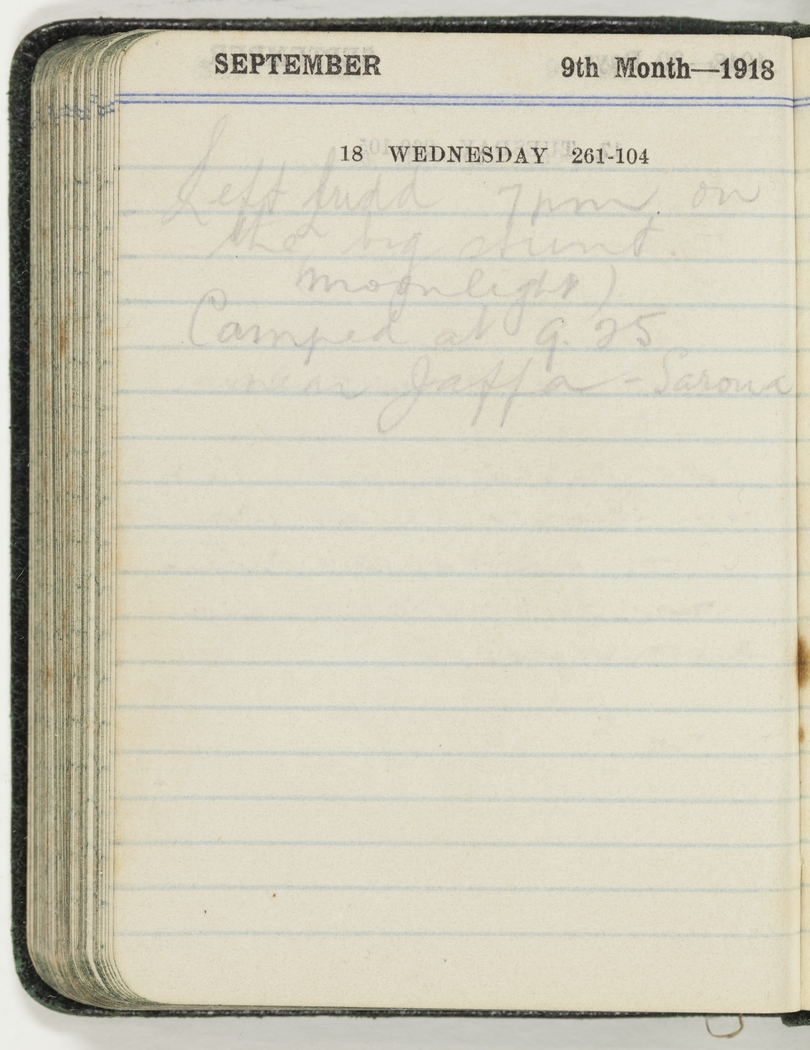 SEPTEMBER 9th Month—1918
18 WEDNESDAY 261-104
Left Ludd 7pm on
the big stunt.
Moonlight)
Camped at 9.25
near Jaffa - Sarona